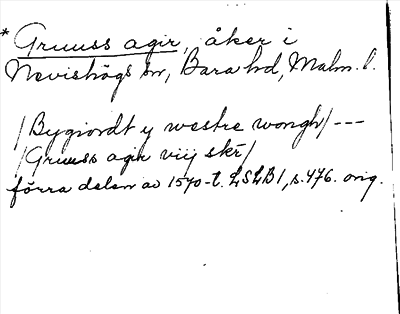 * Gruuss agir, åker i
Nevishögs sn, Bara hd, Malm. l.
/Bygiordt y westre wongh/ ---
/Gruuss agir viij skr/
förra delen av 1570-t. LSLB 1, s. 476. orig.